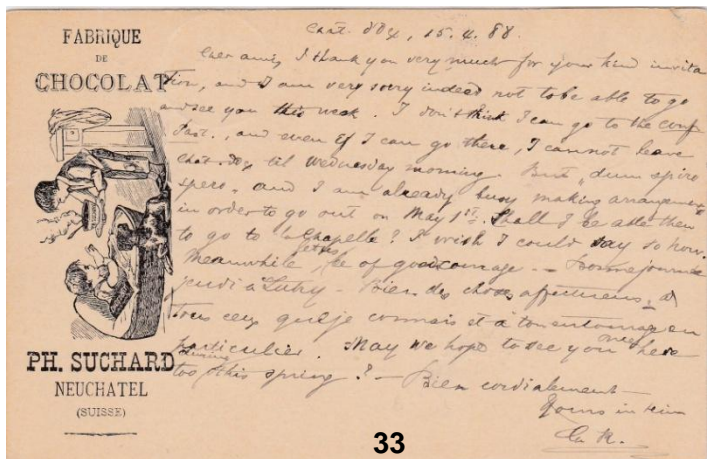 FABRIQUE
DE
CHOCOLAT
PH. SUCHARD
NEUCHATEL
(SUISSE)
Chât. d'Oex, 15. 4. 88.
Cher ami, I thank you very much for your kind invita
tion, and I am very sorry indeed not to be able to go
and see you this week. I don't think I can go to the Conf
Past., and even if I can go there, I cannot leave
Chât. d'Oex til Wednesday morning. But „dum spiro
spero„ and I am already busy making arrangements
in order to go out on May 1st. Shall I be able then
to go to la Chapelle? I wish I could say so now.
Meanwhile, let us be of good courage — Bonne journée
jeudi à Lutry — Bien des choses affectueuses à
tous ceux que je connais et à ton entourage en
particulier. May we hope to see you here
too this spring? — Bien cordialement
Yours in Him
33